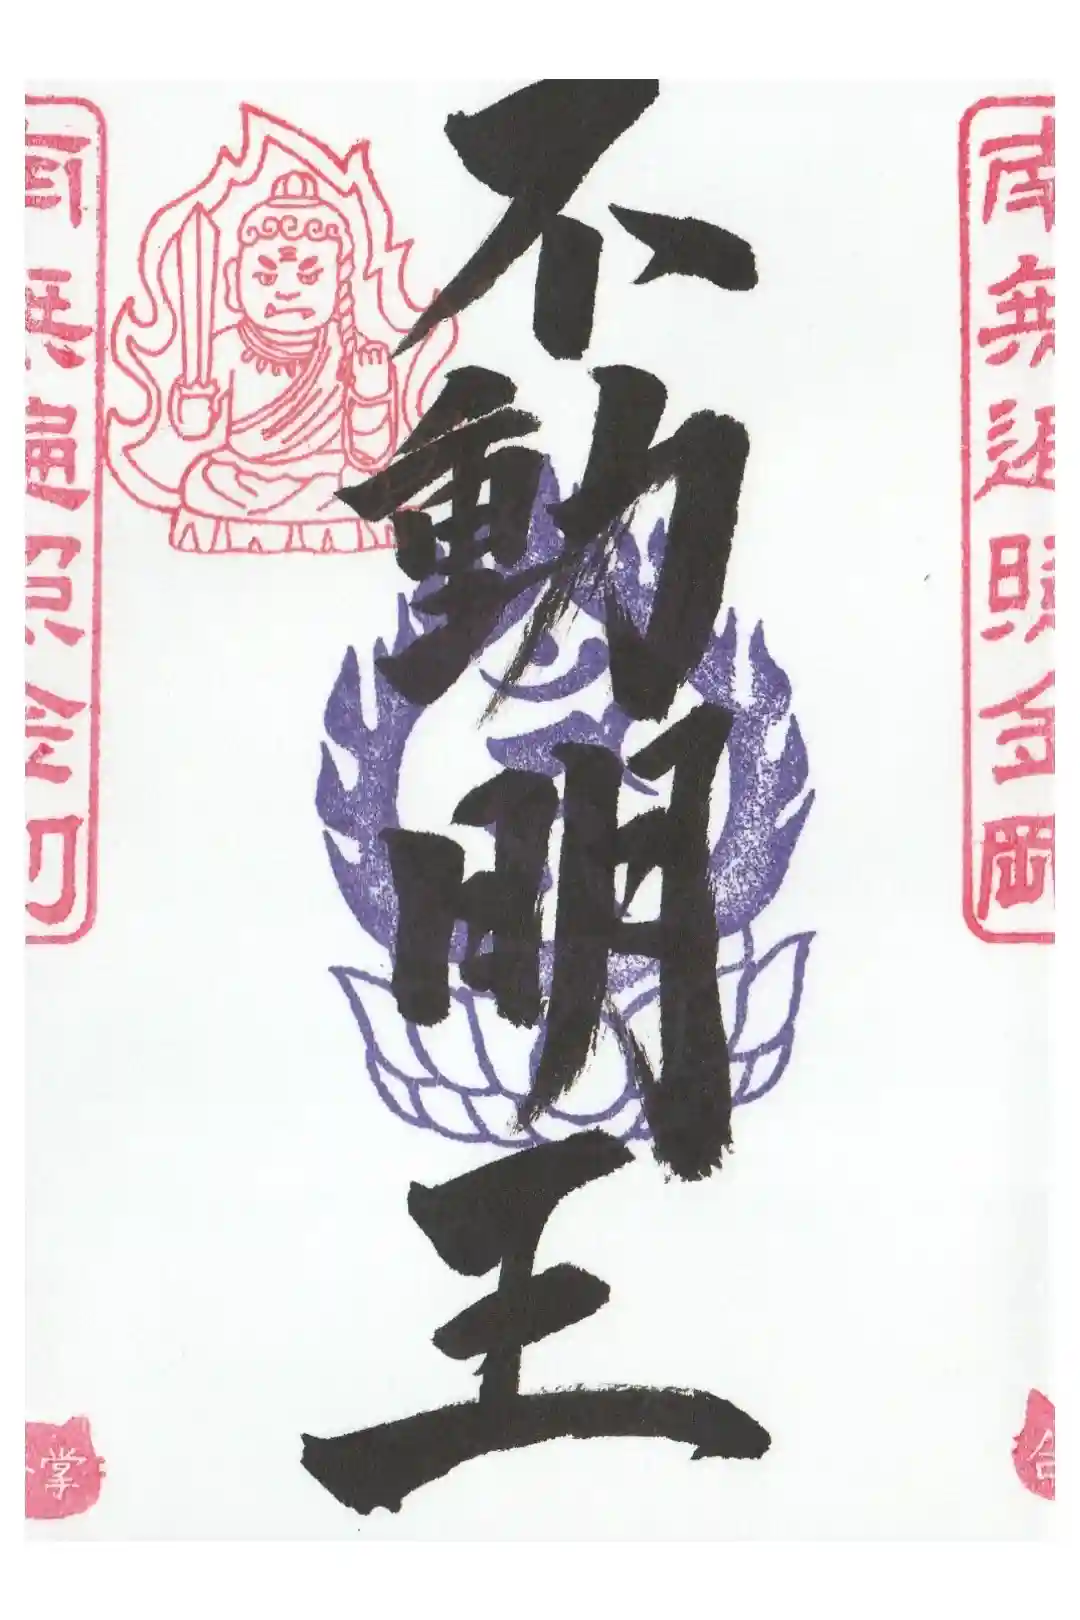 南無遍照金剛
合
不動明王
南無遍照金剛
掌